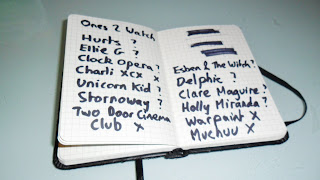 Ones 2 Watch
Hurts ?
Ellie G ?
Clock Opera ?
Charli XCX x
Unicorn Kid ?
Stornoway ?
Two Door Cinema
Club x
Esben & The Witch ?
Delphic ?
Clare Maguire ?
Holly Miranda ?
Warpaint x
Muchuu x